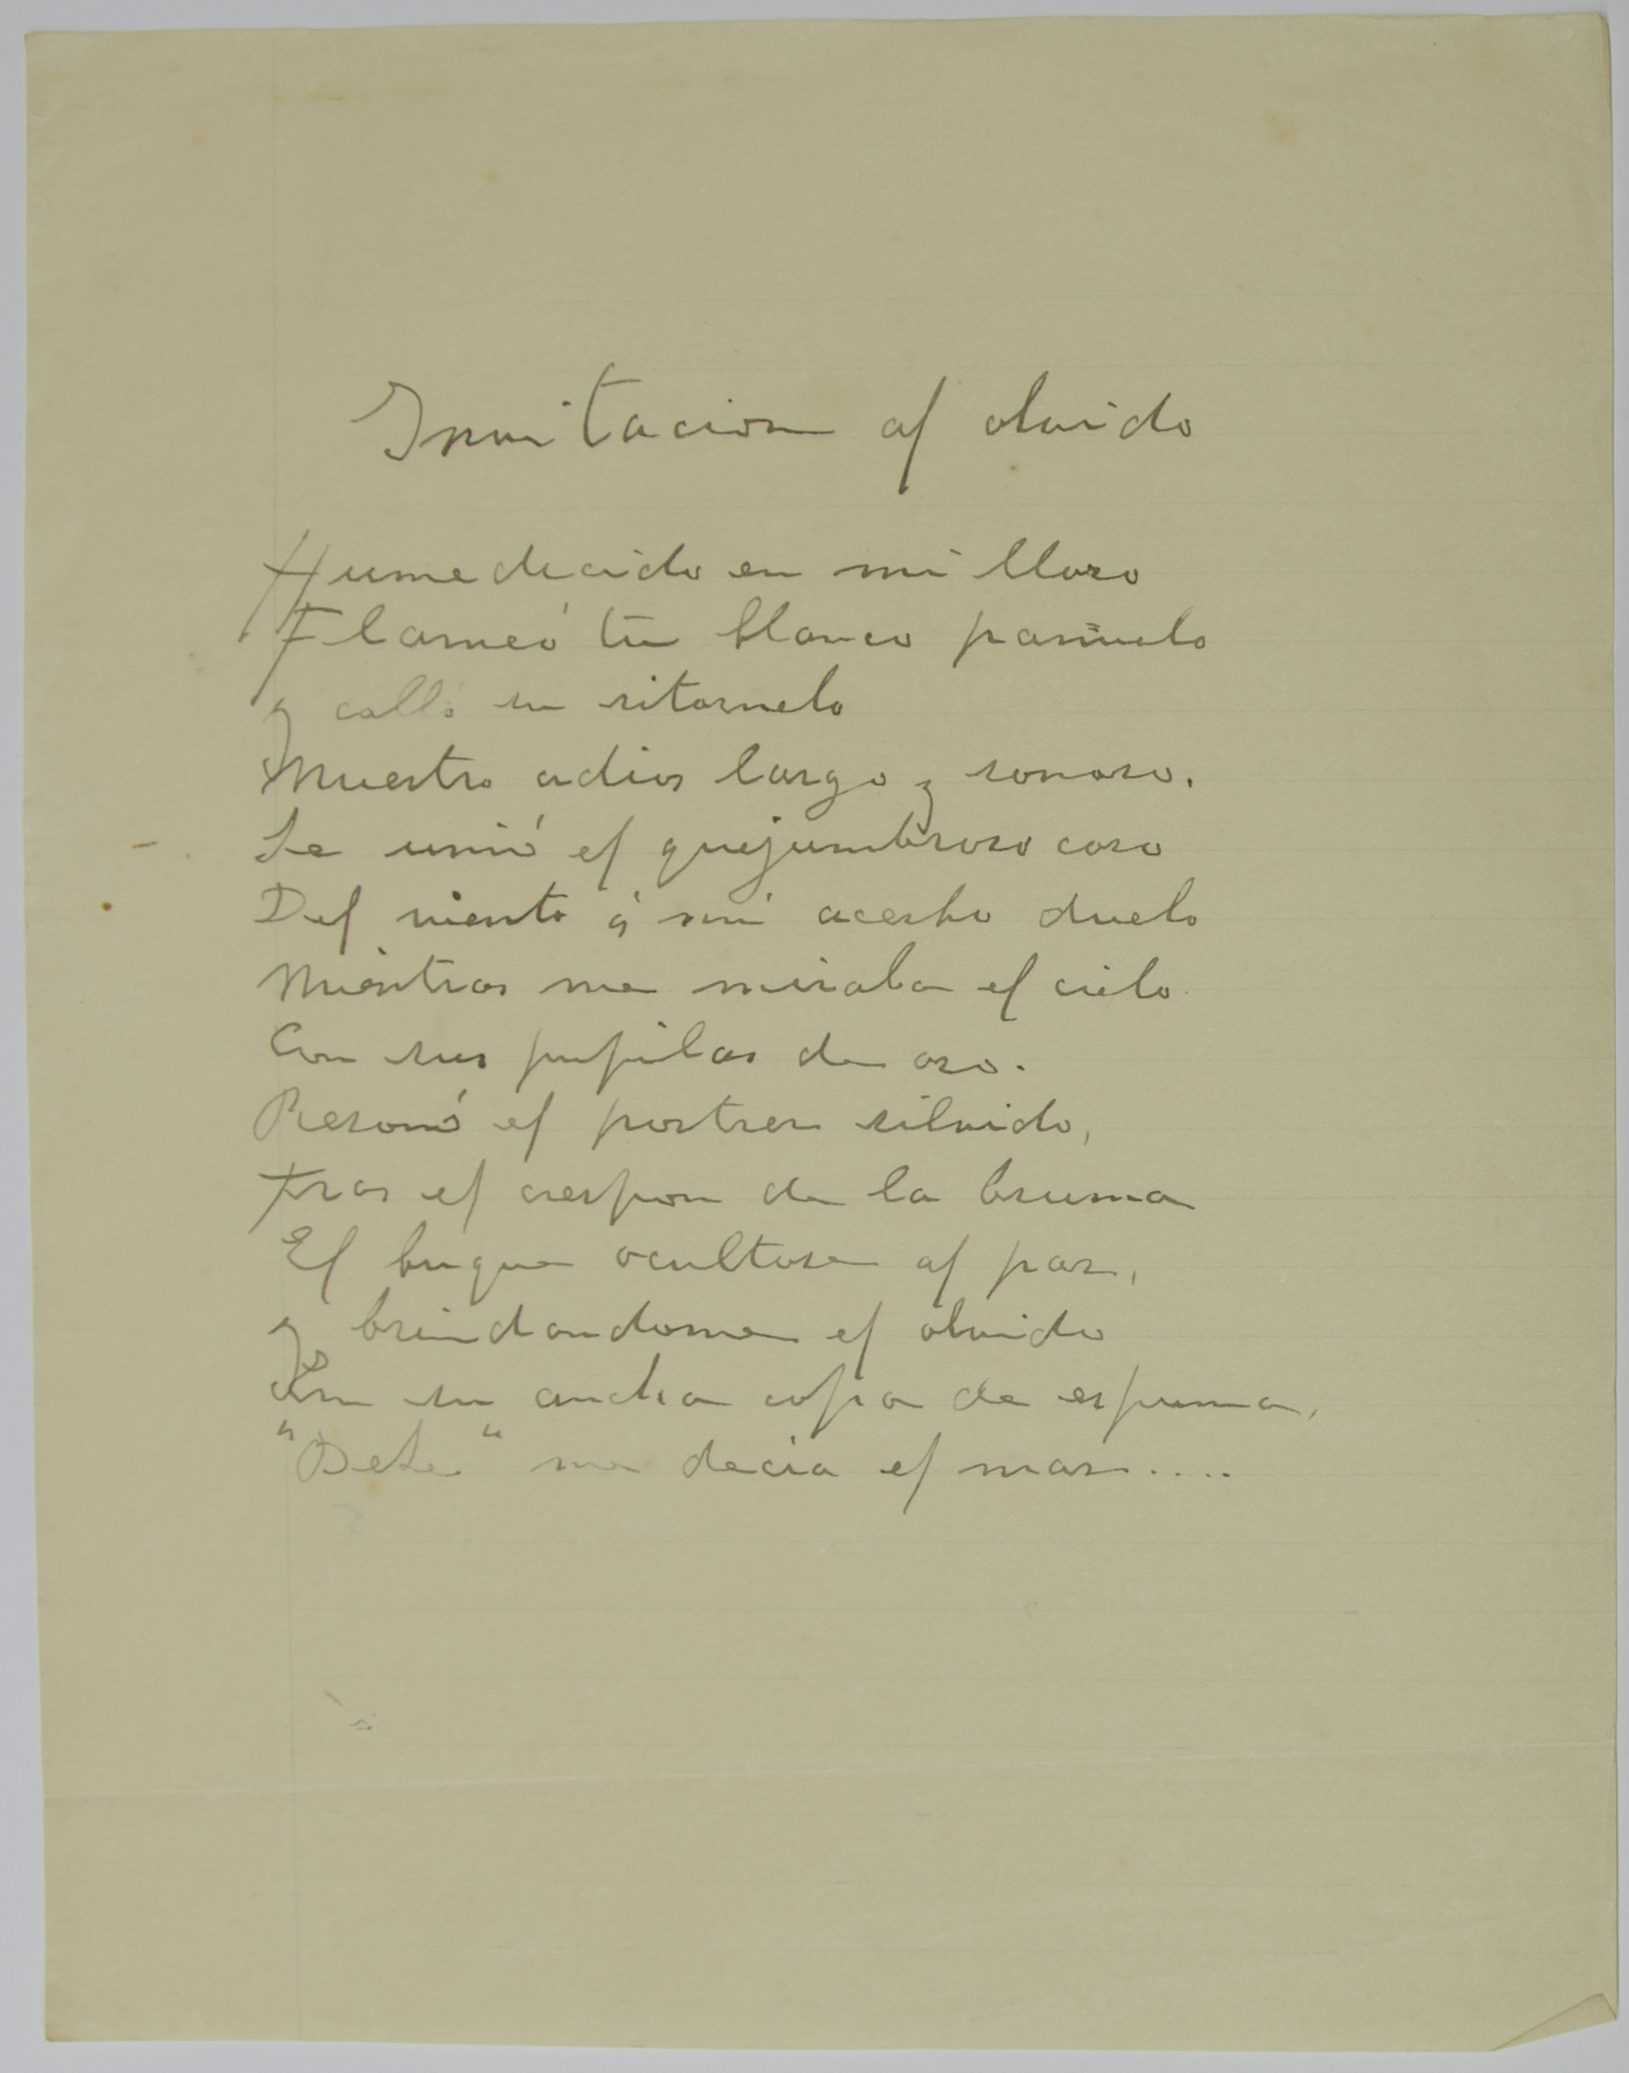 Invitacion al olvido
Humedecido en mi lloro
Flameó tu blanco pañuelo
y calló su ritornelo
Nuestro adios largo y sonoro.
Se unió el quejumbroso coro
Del viento á mi acerbo duelo
Mientras me miraba el cielo
Con sus pupilas de oro.
Resonó el postrer silvido,
tras el crespon de la bruma
El buque ocultose al par,
y brindandome el olvido
En su ancha copa de espuma,
"Bebe" me decia el mar....